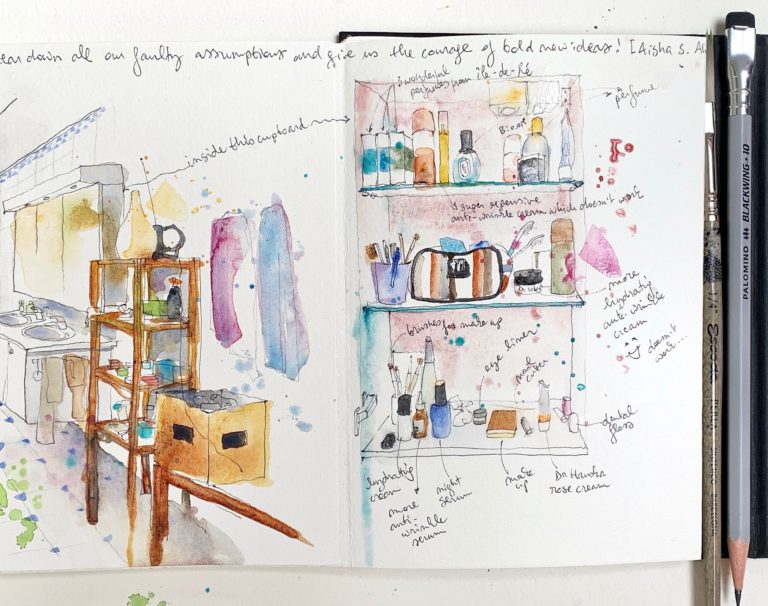 down all our faulty assumptions and give us the courage of bold new ideas! [Aisha S.
wonderful
perfumes from île-de-Ré
perfume
inside this cupboard
Bio-oil
super expensive
anti-wrinkle cream which doesn't work
more
hydrating
anti-wrinkle
cream
doesn't
work...
brushes for make up
eye liner
dental
floss
hydrating
cream
more
anti-
wrinkle
serum
night
serum
make
up
Dr Hauska
rose cream
PALOMINO BLACKWING · 10
Escoda